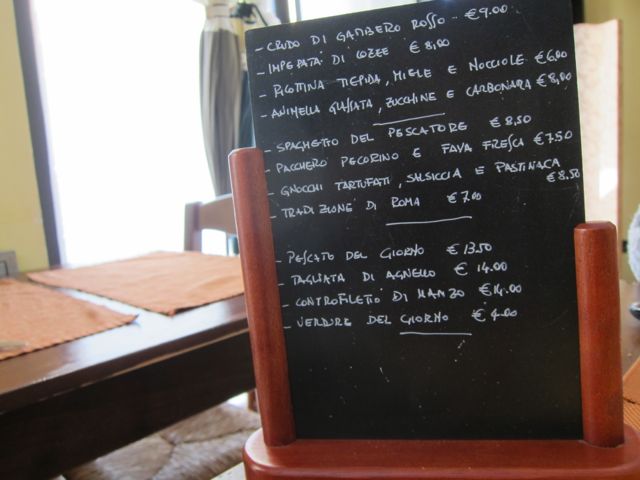 - CRUDO DI GAMBERO ROSSO .. €9.00
- IMPEPATA DI COZZE € 8,00
- RICOTTINA TIEPIDA, MIELE E NOCCIOLE €6,00
- ANIMELLA GLASSATA, ZUCCHINE E CARBONARA €8,00
- SPAGHETTO DEL PESCATORE € 8,50
- PACCHERO PECORINO E FAVA FRESCA €7,50
- GNOCCHI TARTUFATI, SALSICCIA E PASTINACA
€8.50
- TRADIZIONE DI ROMA €7.00
- PESCATO DEL GIORNO € 13.50
- TAGLIATA DI AGNELLO € 14.00
- CONTROFILETTO DI MANZO €14.00
- VERDURE DEL GIORNO €4.00